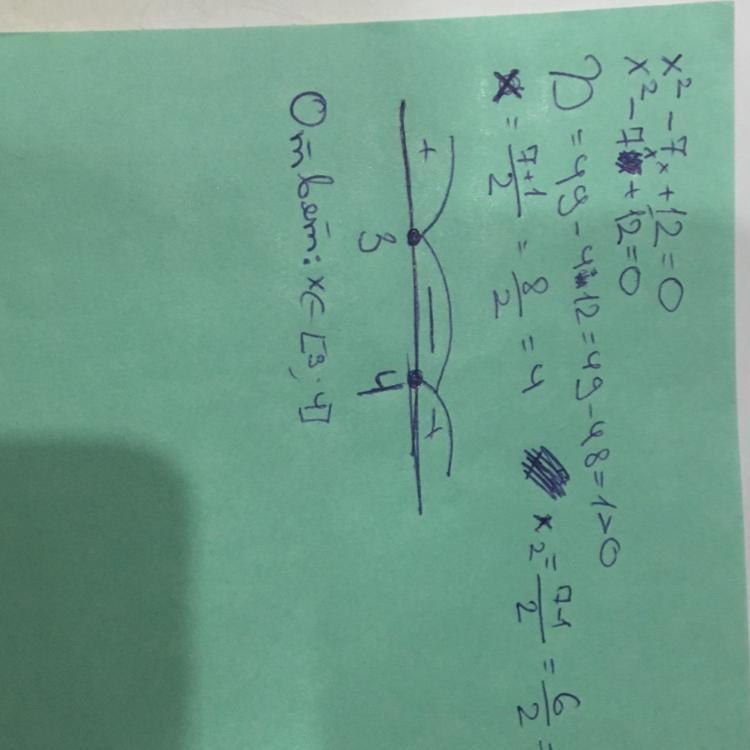 x² - 7x + 12 = 0
x² - 7x + 12 = 0
D = 49 - 4·12 = 49 - 48 = 1 > 0
x = 7+1/2 = 8/2 = 4 x₂ = 7-1/2 = 6/2 =
+ − +
3 4
Ответ: x ∈ [3; 4]